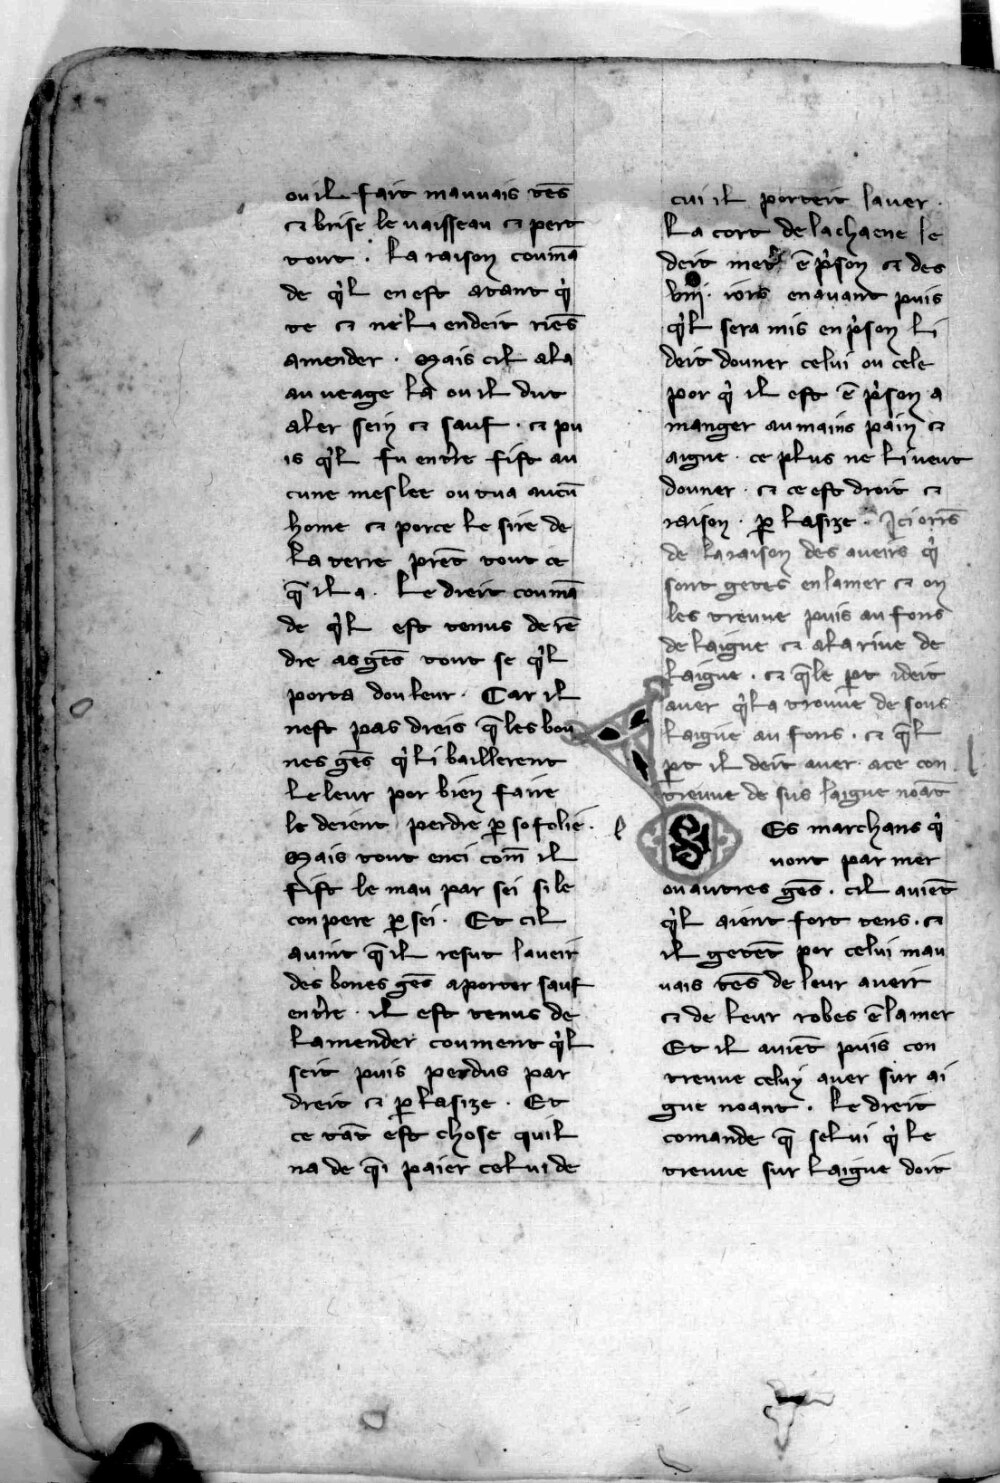 ou il fait mauuais tēs
⁊ brise le uaisseau ⁊ pert
tout . La raison coumā
de q̇l en est atant q̇
te ⁊ ne li endeit riēs
amender . Mais cil ala
au ueage la ou il dut
aler sein ⁊ sauf . ⁊ pu
is q̇l fu entre fist au
cune meslee ou tua aucū
home ⁊ por ce le sire de
la terre prēt tout ce
q̄ il a . Le dreit coumā
de q̇l est tenus de rē
dre as gēs tout se q̇l
porta dou leur . Car il
nest pas dreis q̄ les bou
nes gēs q̇ li baillerent
le leur por bien faire
le deient perdre ꝑ so folie .
Mais tout enci com̄ il
fist le mau par sei si le
conpere ꝑ sei . Et cil
auint q̄ il resut laueir
des bones gēs aporter sauf
entre . il est tenus de
lamender coument q̇l
seit puis perdus par
dreit ⁊ ꝑ lasize . Et
ce tāt est chose quil
na de q̄i paier celui de
cui il porteit lauer .
La cort de la chaene le
deit metr̄ ē ṗson ⁊ des
viii . iors en auant puis
q̇l sera mis en ṗson li
doit douner celui ou cele
por q̇ il est ē ṗson a
manger au mains pain ⁊
aigue . ce plus ne li ueut
douner . ⁊ ce est droit ⁊
raison . ꝑ lasize . Ici orrēs
de la raison des aueirs q̇
sont getes en la mer ⁊ on
les treuue puis au fons
de laigue ⁊ a la riue de
laigue . ⁊ q̄le ꝑt i deit
auer q̇ la trouue de sous
laigue au fons . ⁊ q̄l
ꝑt il deit auer ace con
treuue de sus laigue noāt
l S Es marchans q̇
uont par mer
ou autres gēs . cil auiēt
q̇l aient fort tens . ⁊
il getēt por celui mau
uais tēs de leur aueir
⁊ de leur robes ē la mer
Et il auiēt puis con
treuue celuy auer sur ai
gue noant . Le dreit
comande q̄ selui q̇ le
treuue sur laigue doit